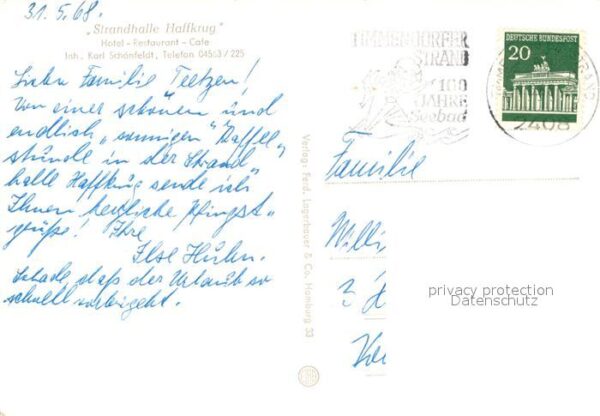 31.5.68.
„Strandhalle Haffkrug"
Hotel - Restaurant - Cafe
Inh. Karl Schönfeldt, Telefon 04563 / 225
Liebe Familie Teetzen!
Von einer schönen und
endlich „sonnigen" Kaffee„
stunde in der Strand
halle Haffkrug sende ich
Ihnen herzliche Pfingst„
grüße! Ihre
Ilse Huhn.
Schade, daß der Urlaub so
schnell vorbeigeht.
Verlag: Ferd. Lagerbauer & Co. Hamburg 33
TIMMENDORFER
STRAND
100
JAHRE
Seebad
DEUTSCHE BUNDESPOST
20
2408
Familie
Willi
privacy protection
Datenschutz